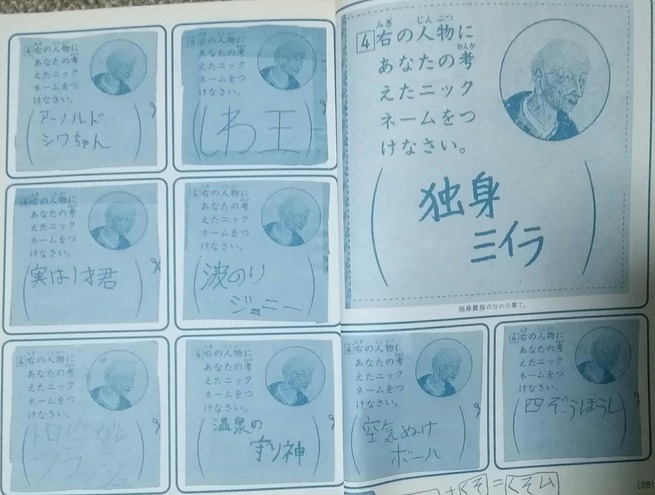 4 右の人物に
あなたの考
えたニック
ネームをつ
けなさい。
アーノルド
シワちゃん
4 右の人物に
あなたの考
えたニック
ネームをつ
けなさい。
(しわ王)
4 右の人物に
あなたの考
えたニック
ネームをつ
けなさい。
(実は1才君)
4 右の人物に
あなたの考
えたニック
ネームをつ
けなさい。
波のり
ジョニー
4 右の人物に
あなたの考
えたニック
ネームをつ
けなさい。
トロピカル
4 右の人物に
あなたの考
えたニック
ネームをつ
けなさい。
温泉の
守り神
4 右の人物に
あなたの考
えたニック
ネームをつ
けなさい。
独身
ミイラ
独身貴族のなれの果て。
4 右の人物に
あなたの考
えたニック
ネームをつ
けなさい。
空気ぬけ
ボール
4 右の人物に
あなたの考
えたニック
ネームをつ
けなさい。
四ぞうほうし
(28)